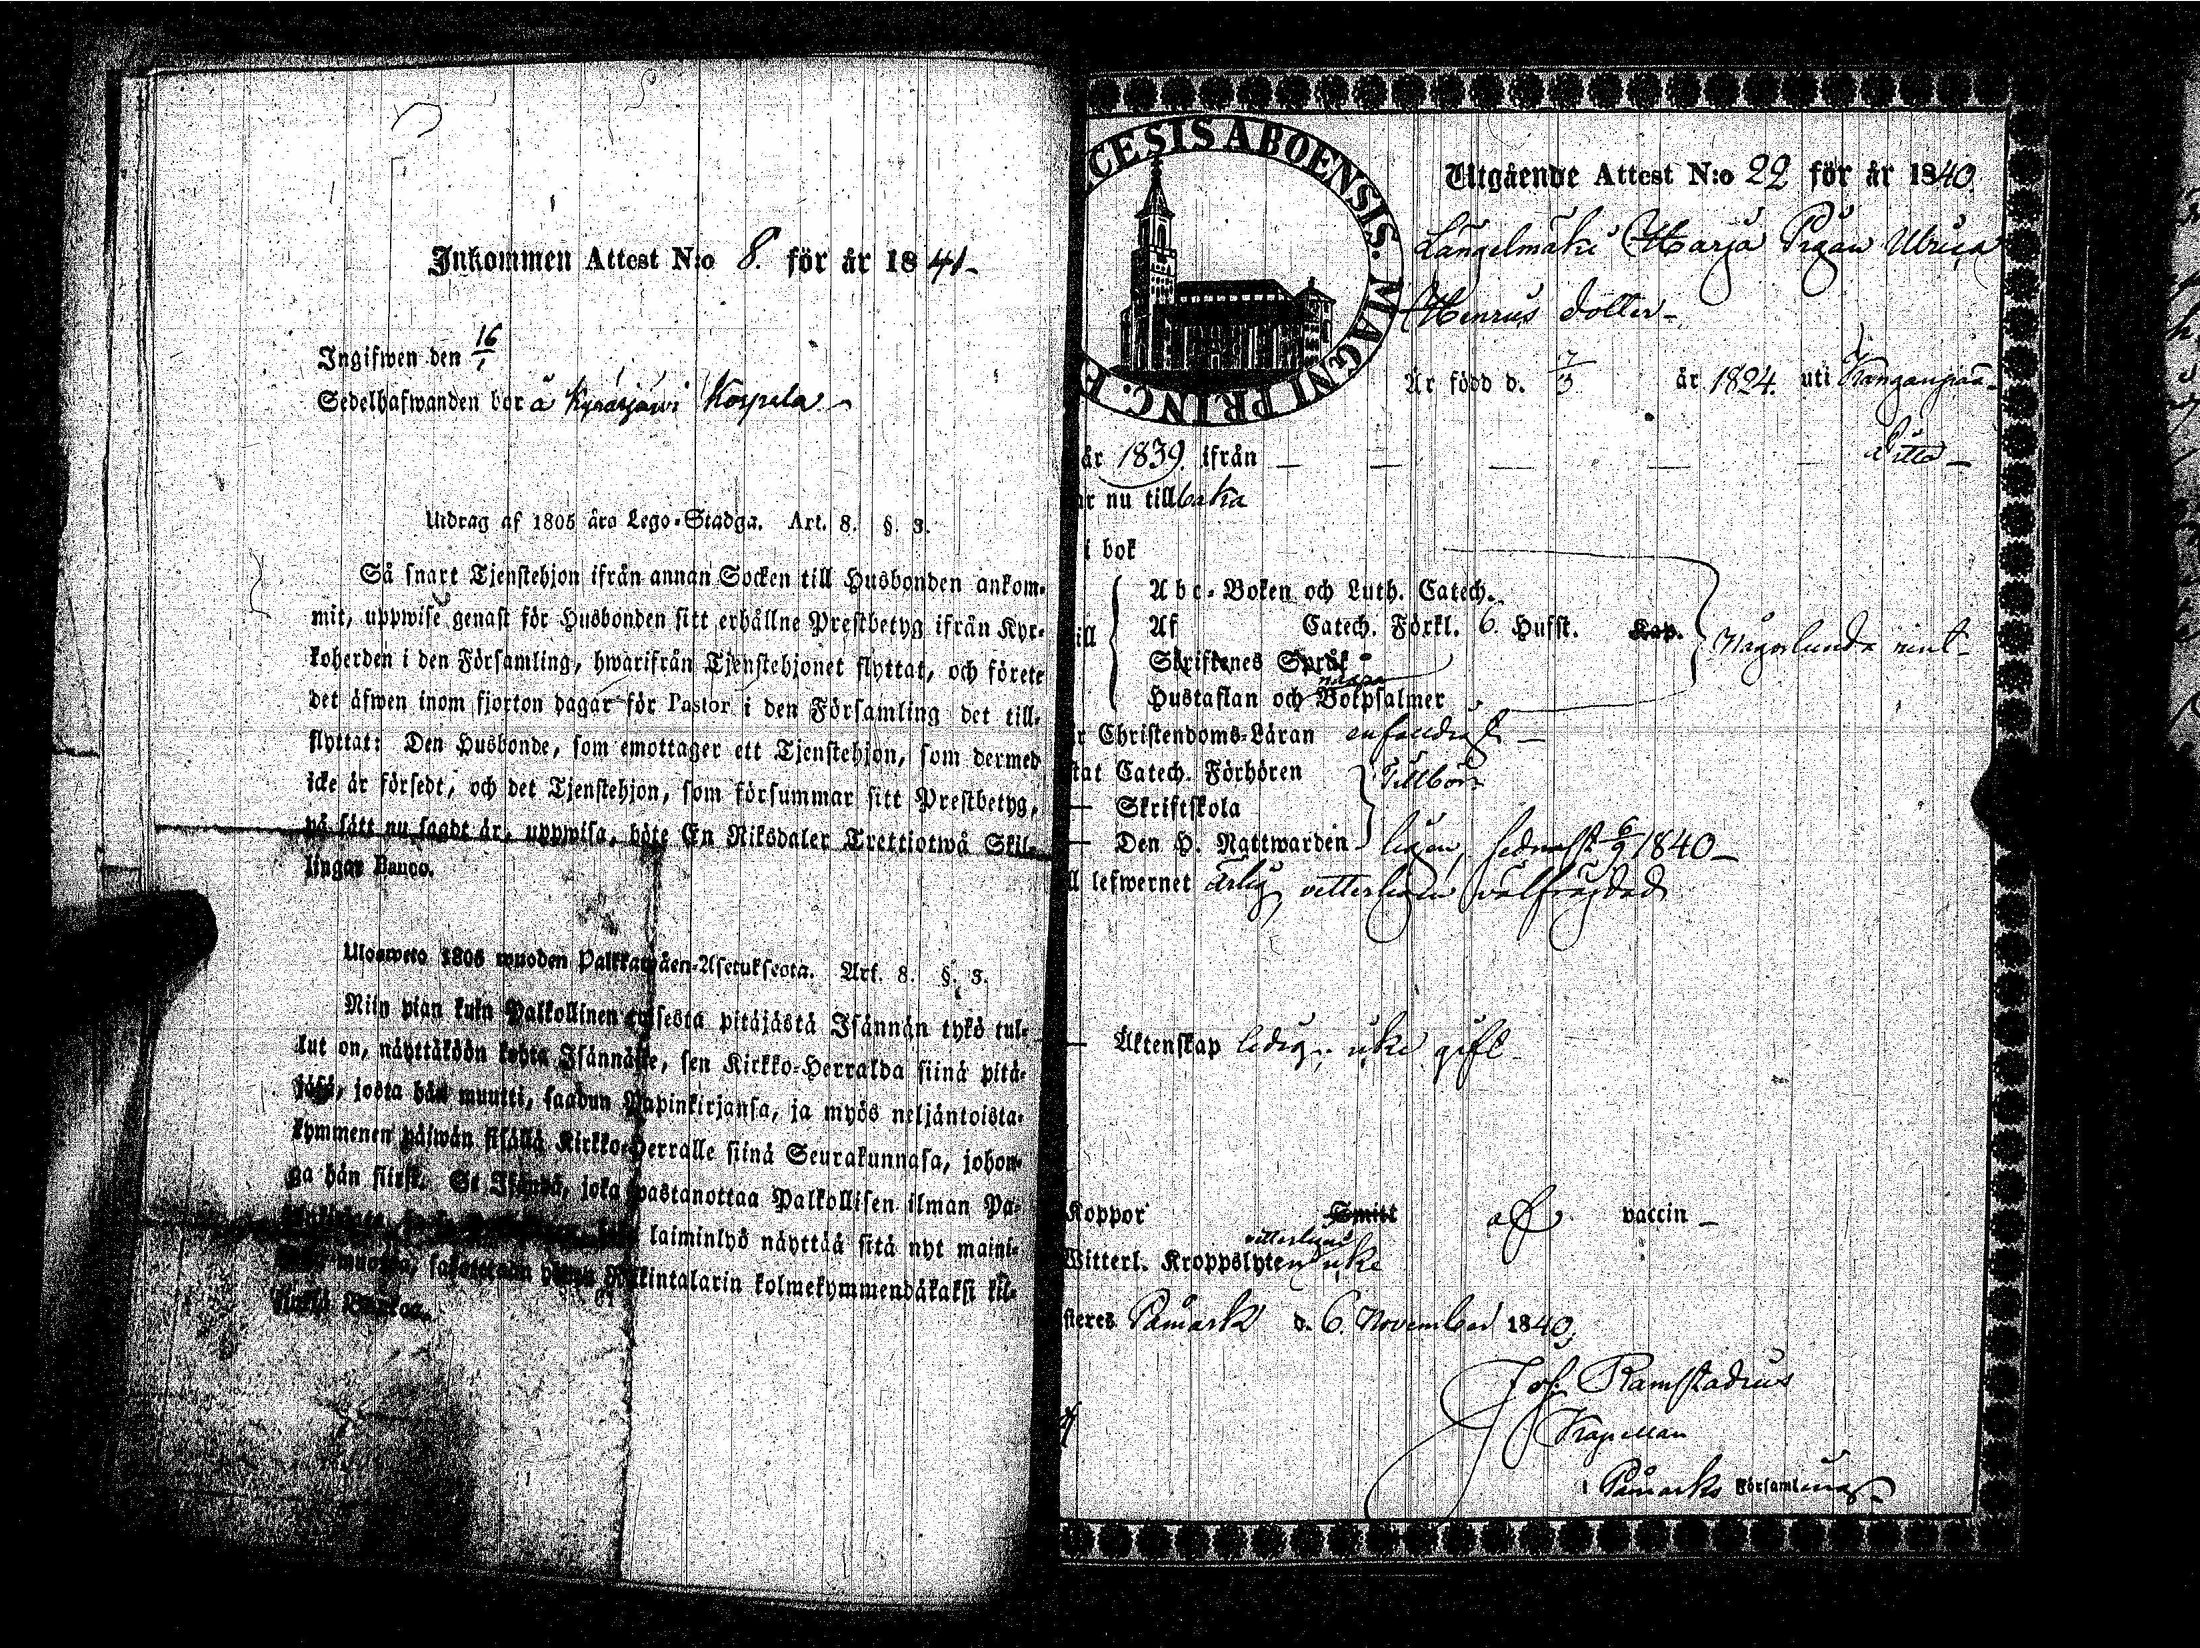 Inkommen Attest N:o 8. för år 1841
Ingifwen den 16/1
Sedelhafwanden bor å Kyrösjärvi Korpela
Utdrag af 1805 års Lego-Stadga. Art. 8. §. 3.
Så snart Tjenstehjon ifrån annan Socken till Husbonden ankom-
mit, uppwise genast för Husbonden sitt erhållne Prestbetyg ifrån Kyr-
koherden i den Församling, hwarifrån Tjenstehjonet flyttat, och förete
det äfwen inom fjorton dagar för Pastor i den Församling det till-
flyttat: Den Husbonde, som emottager ett Tjenstehjon, som dermed
icke är försedt, och det Tjenstehjon, som försummar sitt Prestbetyg,
på sätt nu sagdt är, uppwisa, böte En Riksdaler Trettiotwå Skil-
lingar Banco.
Ulosweto 1805 wuoden Palkkawäen-Asetuksesta. Art. 8. §. 3.
Niin pian kuin Palkollinen toisesta pitäjästä Isännän tykö tul-
lut on, näyttäköön kohta Isännälle, sen Kirkko-Herralda siinä pitä-
jäsä, josta hän muutti, saadun Papinkirjansa, ja myös neljäntoista-
kymmenen päiwän sisällä Kirkko-Herralle siinä Seurakunnasa, johon-
ga hän siirsi. Se Isändä, joka wastanottaa Palkollisen ilman Pa-
laiminlyö näyttää sitä nyt maini-
muotoa, kolmekymmendäkaksi kil-
DIOECESIS ABOENSIS. MAGNI PRINC. F
Utgående Attest N:o 22 för år 1840
Längelmäki Maria Pigan Ulrica
Henrics dotter
Är född d. 7/3 år 1824. uti Kanganpää
år 1839. ifrån — — — — — ditto
ar nu tillbaka
i bok
Abc-Boken och Luth. Catech.
Af Catech. Förkl. 6. Hufst. Kap.
Skriftenes Språk
Hustaflan och Botpsalmer
r Christendoms-Läran
stat Catech. Förhören Tillbör-
— Skriftskola
— Den H. Nattwarden ligen, sednast 6/9 1840
ll lefwernet ärlig, vitterligen välfrägdad
— Äktenskap ledig, icke gift
Koppor Smitt af vaccin
vitterligen
Witterl. Kroppslyten icke
steres Påmark d. 6. November 1840,
Joh. Ramstadius
Kapellan
i Påmarks Församling